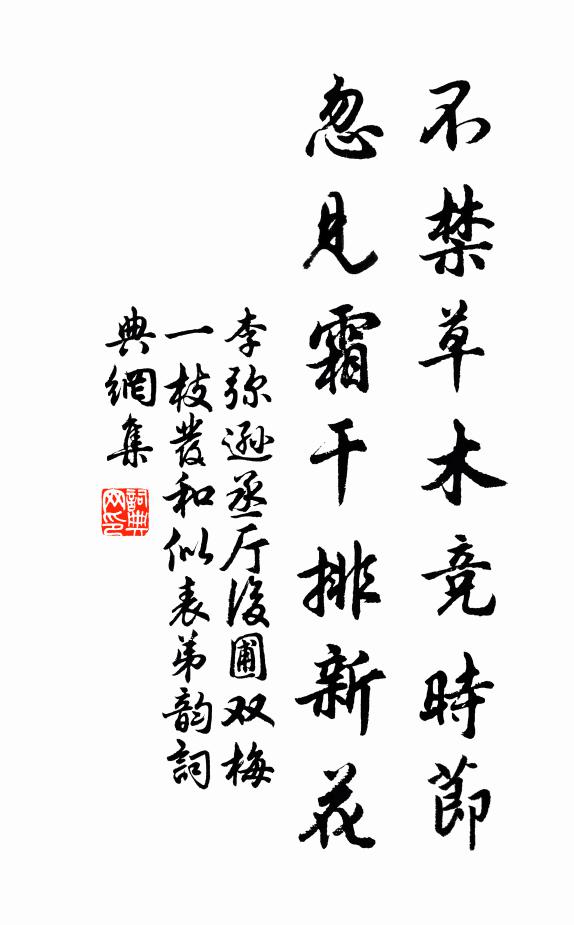 不禁草木竞時節
忽見霜干排新花
李弥遜丞厅後圃双梅
一枝發和似表弟韵詞
典網集
詞典网印